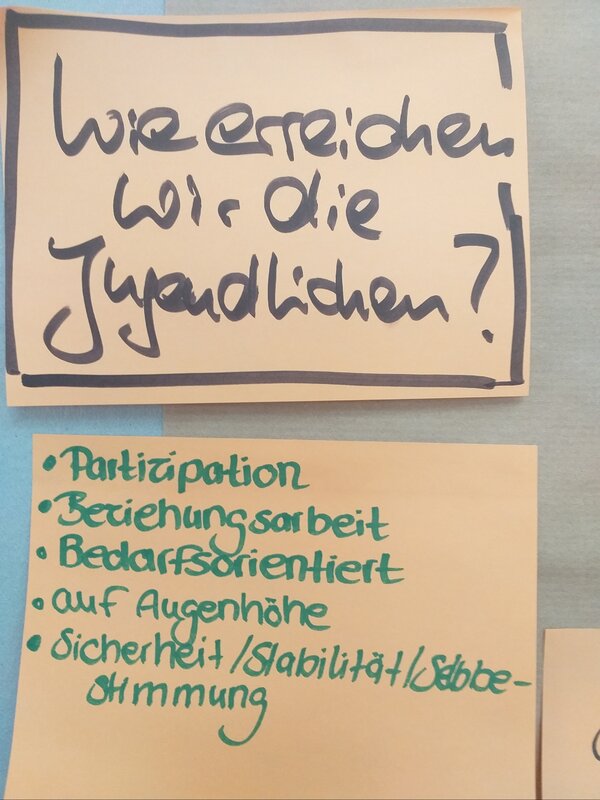 Wie erreichen
wir die
Jugendlichen?
• Partizipation
• Beziehungsarbeit
• Bedarfsorientiert
• auf Augenhöhe
• Sicherheit/Stabilität/Selbbe-
stimmung